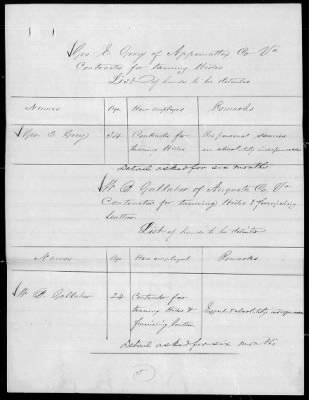 Geo. E. Gray of Appomattox Co Va
Contractor for tanning Hides
List of hands to be detailed
Names Age How employed Remarks
Geo. E. Gray 34 Contractor for His personal services
tanning Hides are absolutely indispensable
Details asked for six months
of Augusta Co. Va
Contractor for tanning Hides & furnishing
Leather
List of hands to be detailed
Names Age How employed Remarks
24 Contractor for
tanning Hides & Expert & absolutely indispensable
furnishing leather
Detail asked for six months